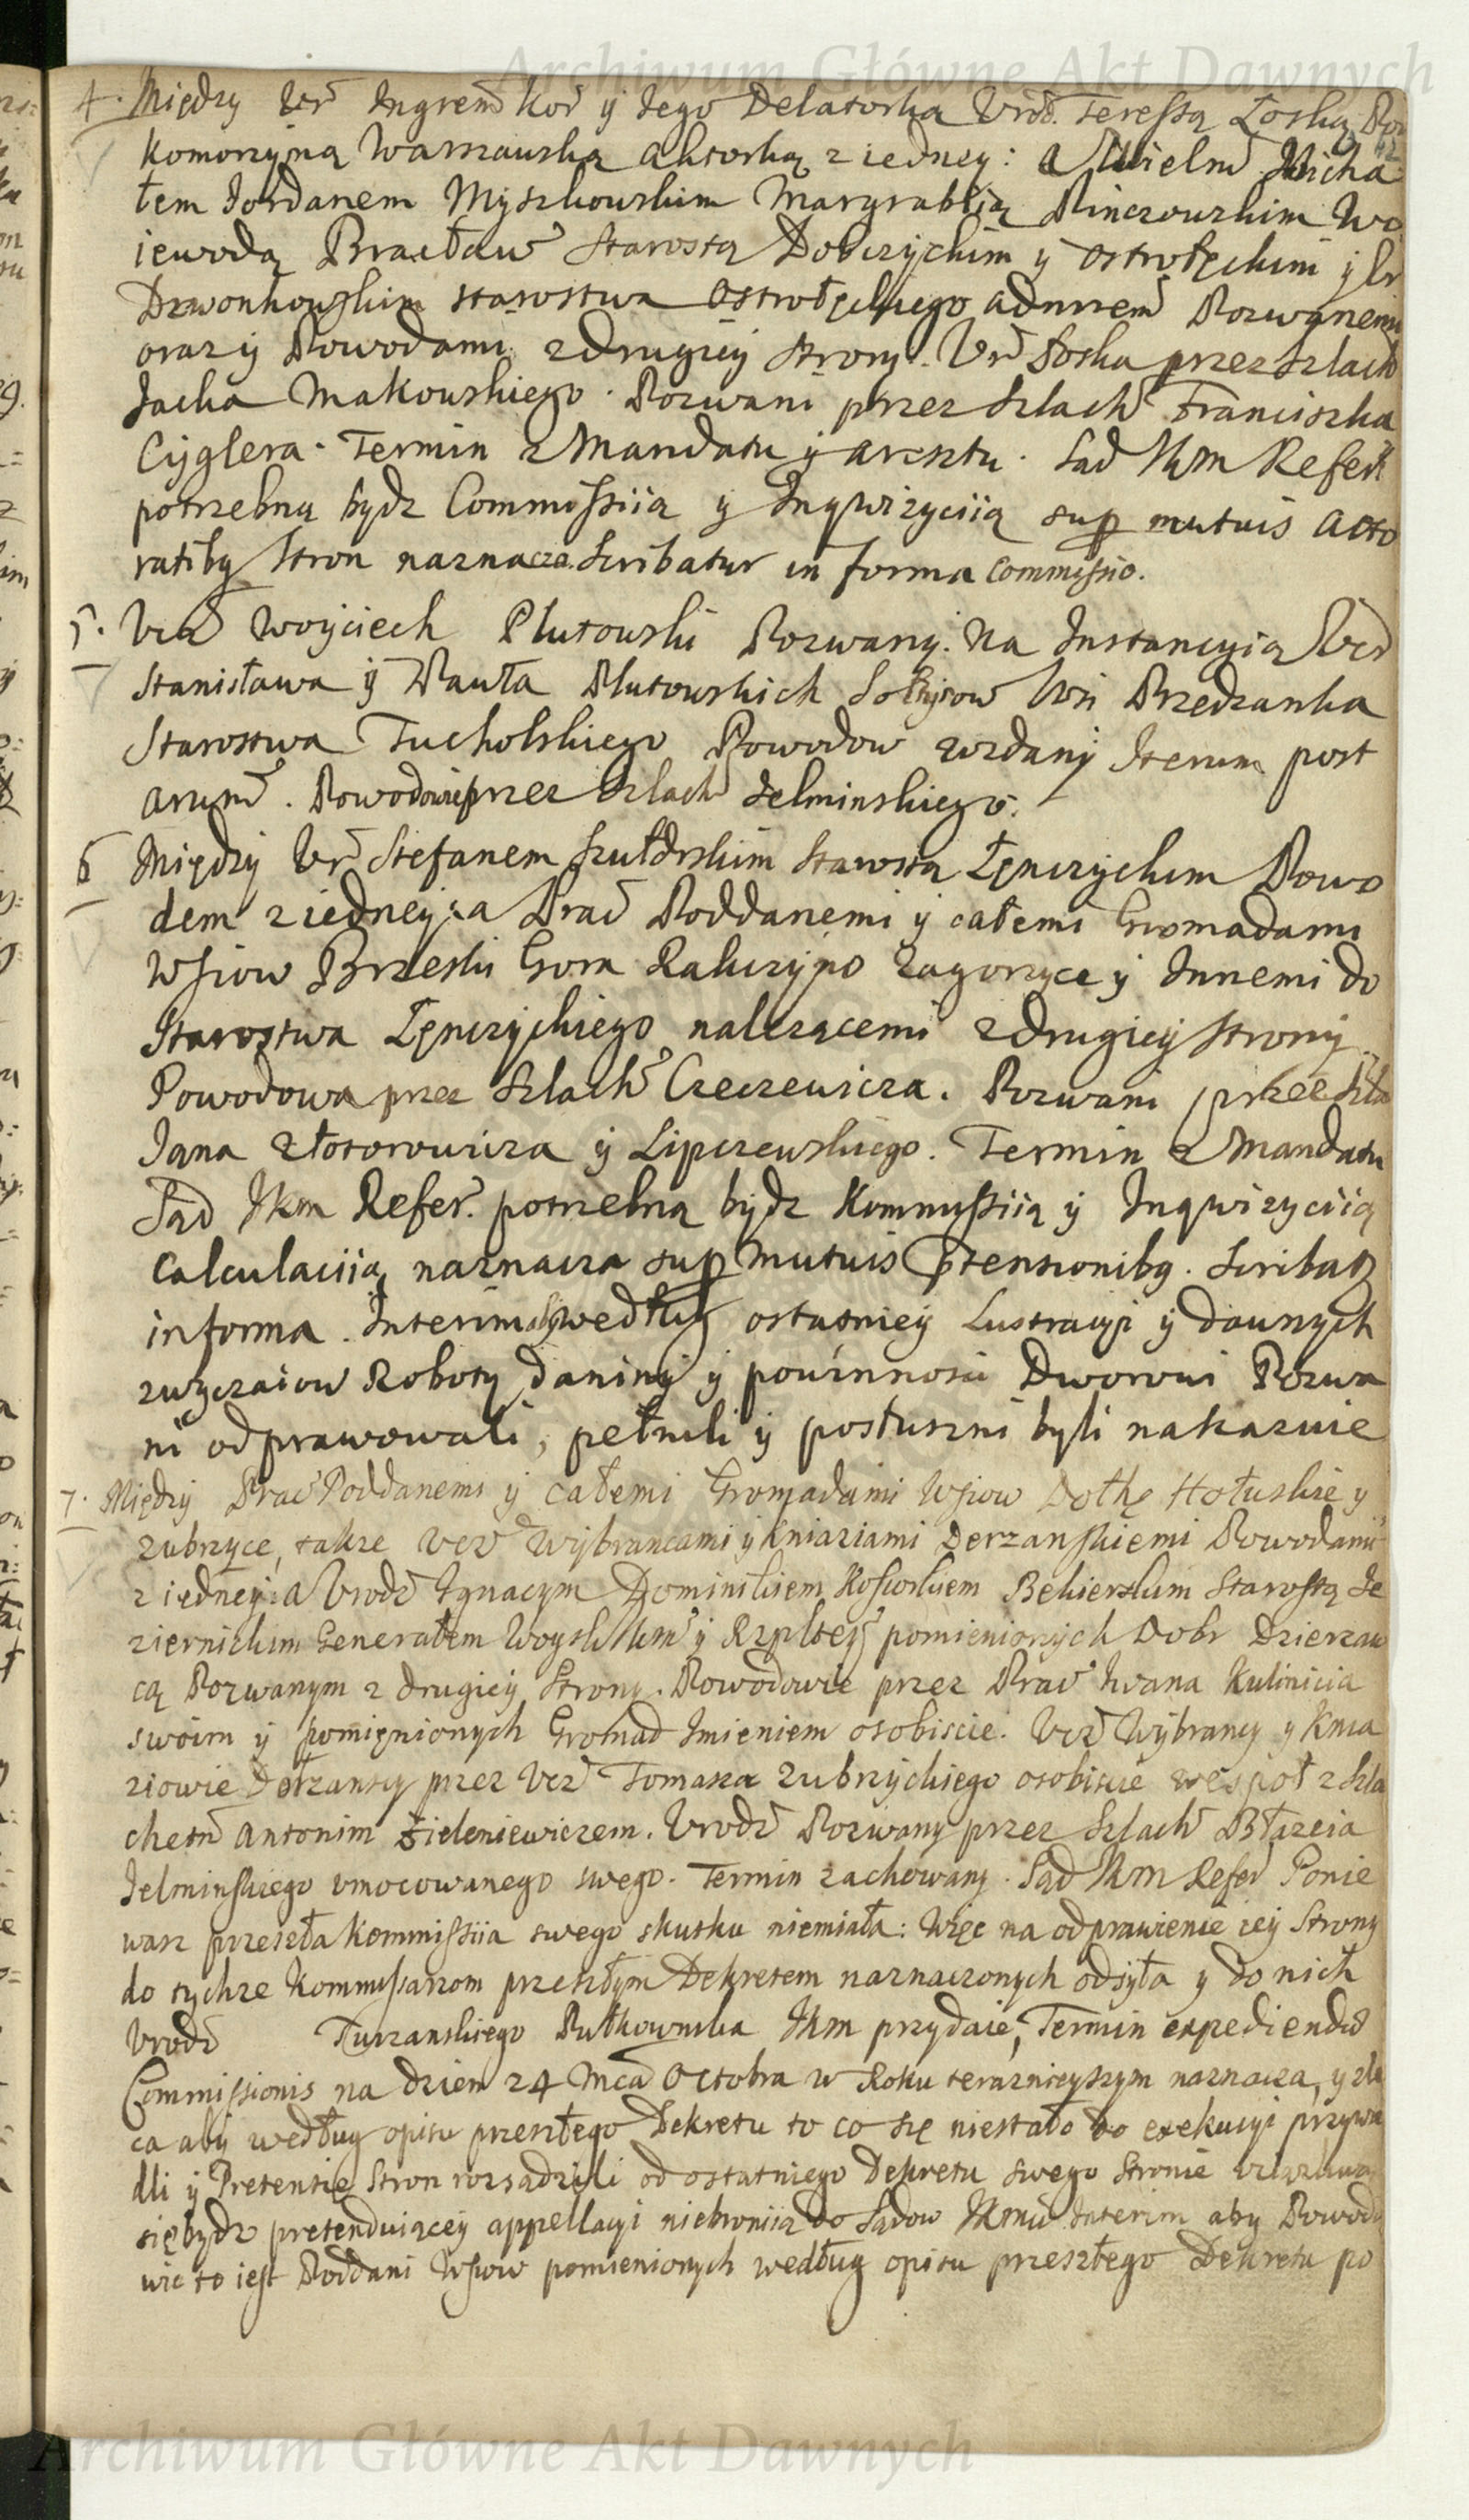 Archiwum Główne Akt Dawnych
4. Między Ur Ingren Kor y Jego Delatorką Urod. Teressą Łoską Po
komorzyną Warszawską Aktorką z iedney: a Wielm Micha
łem Jordanem Myszkowskim Margrabią Pinczowskim Wo
iewodą Bracław Starostą Dobczyckim y Ostrołęckim y Ur
Dzwonkowskim starostwa Ostrołęckiego Pozwanemi
oraz y Powodami z drugiey strony. Ur Łoska przez Szlach
Jacka Makowskiego. Pozwani przez Szlach Franciszka
Cyglera. Termin z Mandatu y aresztu. Sad Jkm Refer
potrzebną bydz Commissiią y Inqwizyciią sup mutuis acto
ratibg Stron naznacza. Scribatur in forma Commissio.
5. Ucz Woyciech Plutowski Pozwany. Na Instancyią Ucz
Stanisława y Pawła Plutowskich Sołtysow Wsi Brzedzanka
Starostwa Tucholskiego Powodow wzdany Iterum post
arum. Powodowie przez Szlach Jelminskiego.
6 Między Ur Stefanem Szułdrskim Starostą Łęczyckim Powo
dem z iedney: a Prac Poddanemi y całemi Gromadami
Wsiow Brzeski Gora Kalczyno Zagorzyce y Innemi do
Starostwa Łęczyckiego należącemi z drugiey strony
Powodowa przez Szlach Czeczewicza. Pozwani przez Szla
Jana Złotorowicza y Lipczewskiego. Termin z Mandatu
Sąd Jkm Refer. potrzebną bydz Kommyssiią y Inqwizyciią
Calculaciią naznacza sup mutuis Ptensionibg. Scribatz
in forma. Interim aby według ostatniey Lustracyi y dawnych
zwyczaiow Roboty daniny y powinnosci Dworowi Pozwa
ni odprawowali, pełnili y posłuszni byli nakazuie
7. Między Prac Poddanemi y całemi Gromadami Wsiow Dołhe Hołuskie y
Zubrzyce, także Ucz Wybrancami y Kniaziami Derzanskiemi Powodami
z iedney: a Urodz Ignacym Dominikiem Kosciołkiem Bekierskim Starostą Je
ziernickim Generałem Woysk Jkm y Rzpltey pomienionych Dobr Dzierzaw
cą Pozwanym z drugiey Strony. Powodowie przez Prac Iwana Kulinicia
swoim y pomienionych Gromad Imieniem osobiscie. Ucz Wybrancy y Knia
ziowie Derzanscy przez Ucz Tomasza Zubrzyckiego osobiscie wespoł z Szla
chetn Antonim Zieleniewiczem. Urodz Pozwany przez Szlach Błazeia
Jelminskiego umocowanego swego. Termin zachowany. Sąd Jkm Refer Ponie
wasz przeszła Kommissiia swego skutku niemiała: Więc na odprawienie iey Strony
do tychze Kommissarzom przeszłym Dekretem naznaczonych odsyła y do nich
Urodz Turzanskiego Pułkownika Jkm przydaie, Termin expediendæ
Commissionis na dzien 24 Mca Octobra w Roku terazniyszym naznacza, y zle
ca aby według opisu przeszłego Dekretu to co się niestało do exekucyi przywie
dli y Pretensie Stron rozsądzili od ostatniego Dekretu swego Stronie
się bydz pretenduiącey appellacyi niebroniią do Sądow Jkmci Interim aby Powodo
wie to iest Poddani Wsiow pomienionych według opisu przeszłego Dekretu po
Archiwum Główne Akt Dawnych